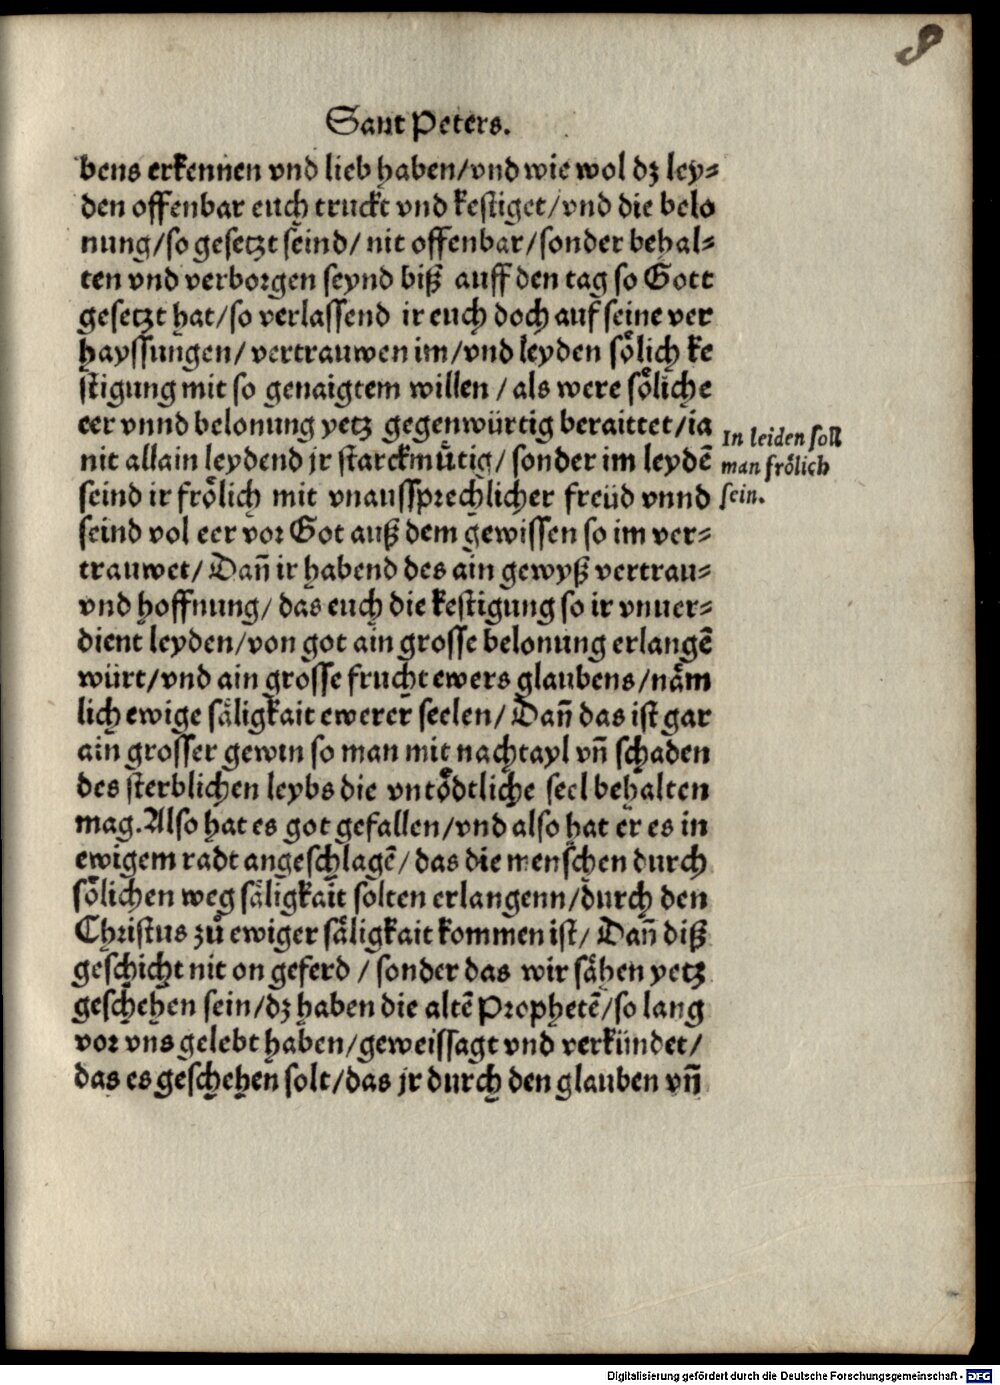 8
Sant Peters.
bens erkennen vnd lieb haben/vnd wie wol dz ley⸗
den offenbar euch truckt vnd kestiget/vnd die belo
nung/so gesetzt seind/nit offenbar/sonder behal⸗
ten vnd verborgen seynd biß auff den tag so Gott
gesetzt hat/so verlassend ir euch doch auf seine ver
hayssungen/vertrauwen im/vnd leyden soͤlich ke
stigung mit so genaigtem willen/als were soͤliche
eer vnnd belonung yetz gegenwürtig beraittet/ia
nit allain leydend jr starckmuͤtig/sonder im leydē
seind ir froͤlich mit vnaussprechlicher freüd vnnd
seind vol eer vor Got auß dem gewissen so im ver⸗
trauwet/Dañ ir habend des ain gewyß vertrau⸗
vnd hoffnung/das euch die kestigung so ir vnuer⸗
dient leyden/von got ain grosse belonung erlangē
würt/vnd ain grosse frucht ewers glaubens/naͤm
lich ewige saͤligkait ewerer seelen/Dañ das ist gar
ain grosser gewin so man mit nachtayl vñ schaden
des sterblichen leybs die vntoͤdtliche seel behalten
mag.Also hat es got gefallen/vnd also hat er es in
ewigem radt angeschlagē/das die menschen durch
soͤlichen weg saͤligkait solten erlangenn/durch den
Christus zuͦ ewiger saͤligkait kommen ist/Dañ diß
geschicht nit on geferd/sonder das wir saͤhen yetz
geschehen sein/dz haben die altē Prophetē/so lang
vor vns gelebt haben/geweissagt vnd verkündet/
das es geschehen solt/das jr durch den glauben vñ
In leiden soll
man froͤlich
sein.
Digitalisierung gefördert durch die Deutsche Forschungsgemeinschaft - DFG